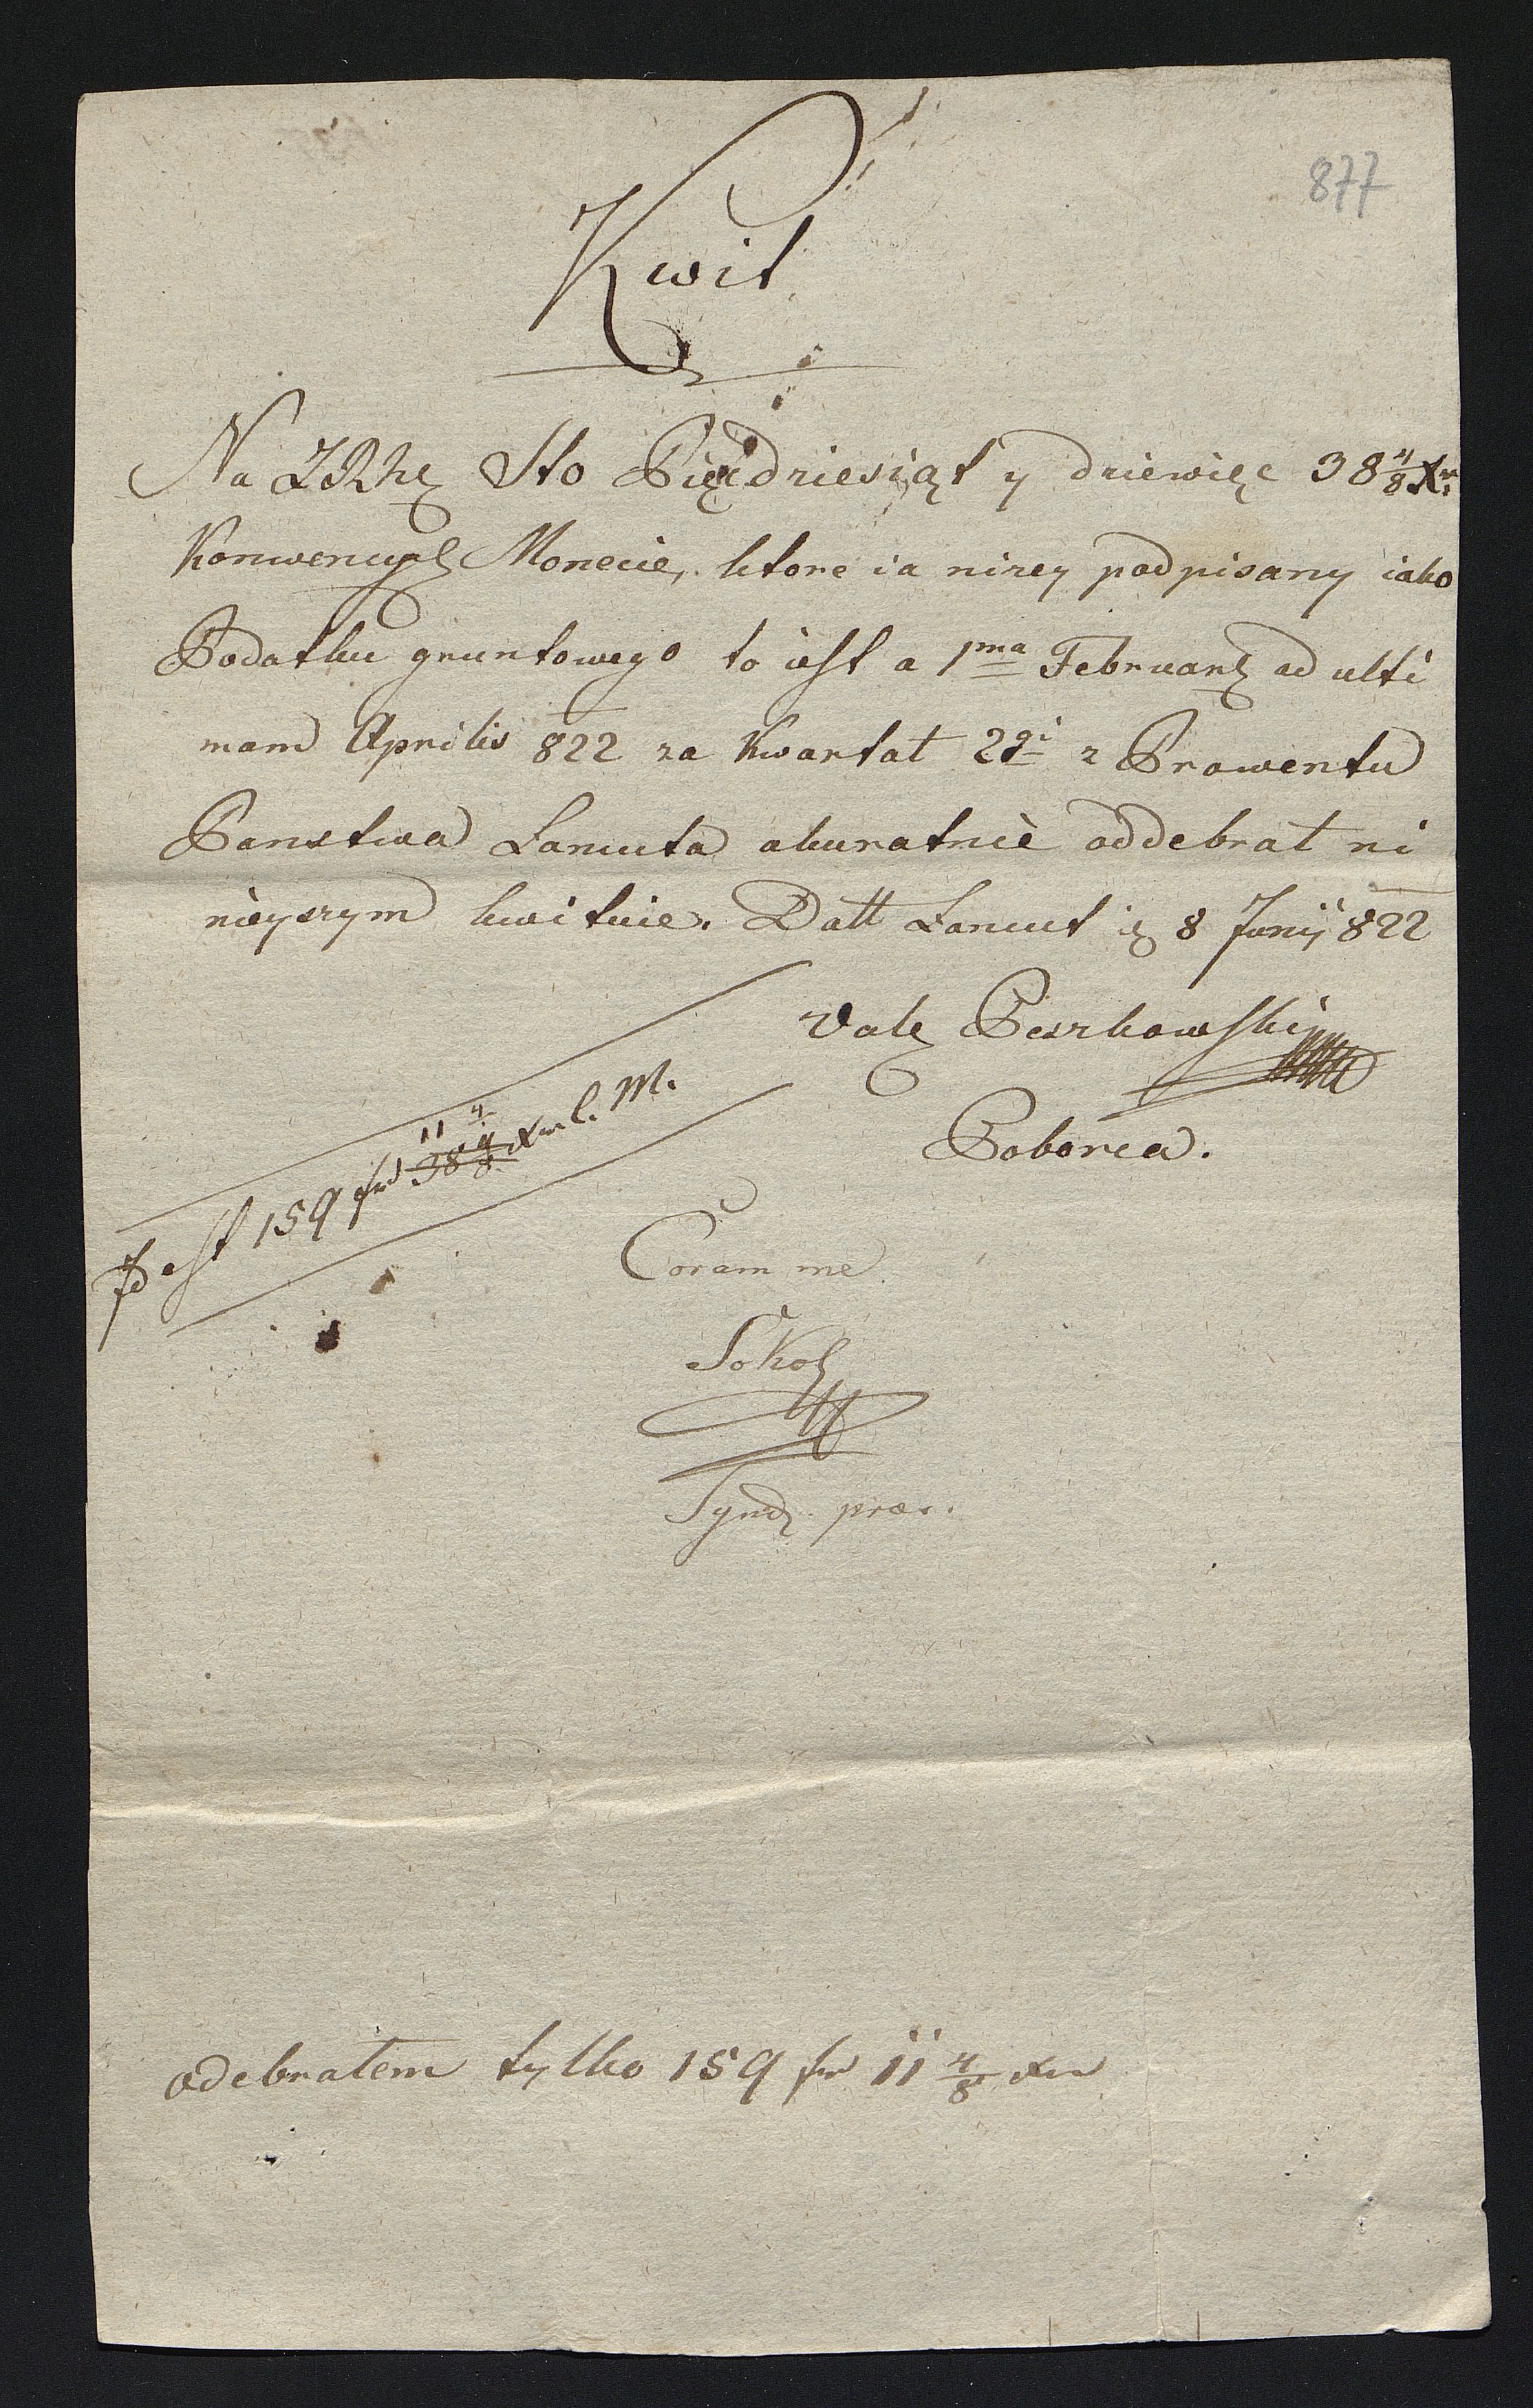 877
Kwit
Na ZRhę Sto Pięcdziesiąt y dziewięc 38 4/8 Xr
Konwency Monecie, ktore ia nizey podpisany iako
Podatku gruntowego to iest a 1ma Februar ad ulti
mam Aprilis 822 za Kwartał 2gi z Prowentu
Panstwa Lancuta akuratnie oddebrał ni
nieyszym kwituie. Datt Lancut 8 Junij 822
Val Peszkowski
Poborca.
Id est 159 fr 11 4/8 38 4/8 xr C. M.
Coram me
Sokol
Synd. præs.
odebrałem tylko 159 fr 11 4/8 xr